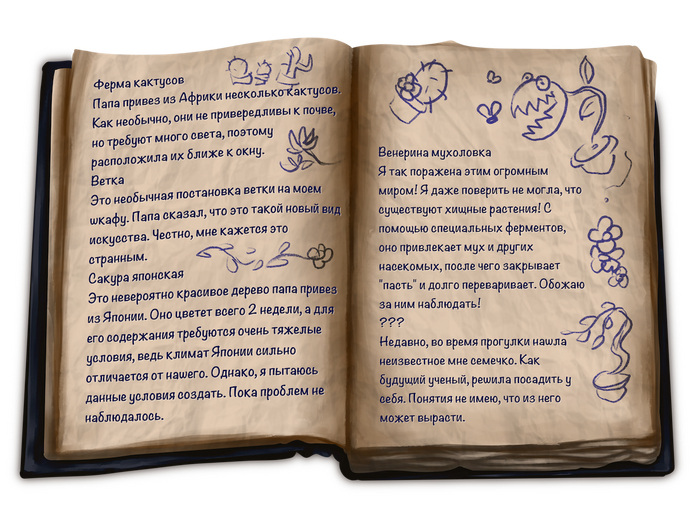 Ферма кактусов
Папа привез из Африки несколько кактусов.
Как необычно, они не привередливы к почве,
но требуют много света, поэтому
расположила их ближе к окну.
Ветка
Это необычная постановка ветки на моем
шкафу. Папа сказал, что это такой новый вид
искусства. Честно, мне кажется это
странным.
Сакура японская
Это невероятно красивое дерево папа привез
из Японии. Оно цветет всего 2 недели, а для
его содержания требуются очень тяжелые
условия, ведь климат Японии сильно
отличается от нашего. Однако, я пытаюсь
данные условия создать. Пока проблем не
наблюдалось.
Венерина мухоловка
Я так поражена этим огромным
миром! Я даже поверить не могла, что
существуют хищные растения! С
помощью специальных ферментов,
оно привлекает мух и других
насекомых, после чего закрывает
"пасть" и долго переваривает. Обожаю
за ним наблюдать!
???
Недавно, во время прогулки нашла
неизвестное мне семечко. Как
будущий ученый, решила посадить у
себя. Понятия не имею, что из него
может вырасти.